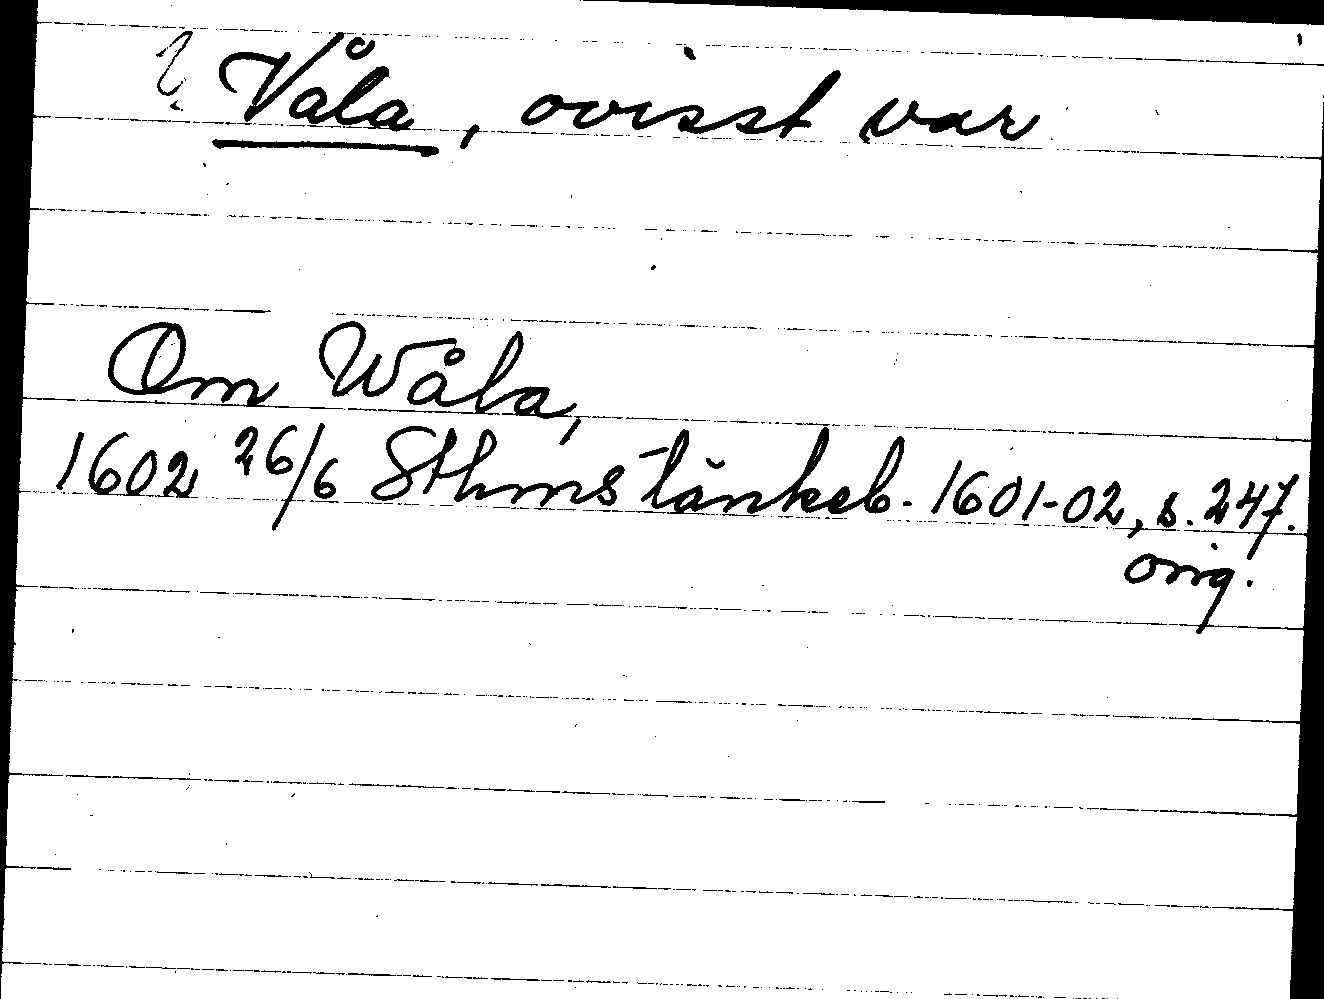 ? Våla, ovisst var
Om Wåla,
1602 26/6 Sthms tänkeb. 1601-02, s. 247.
orig.